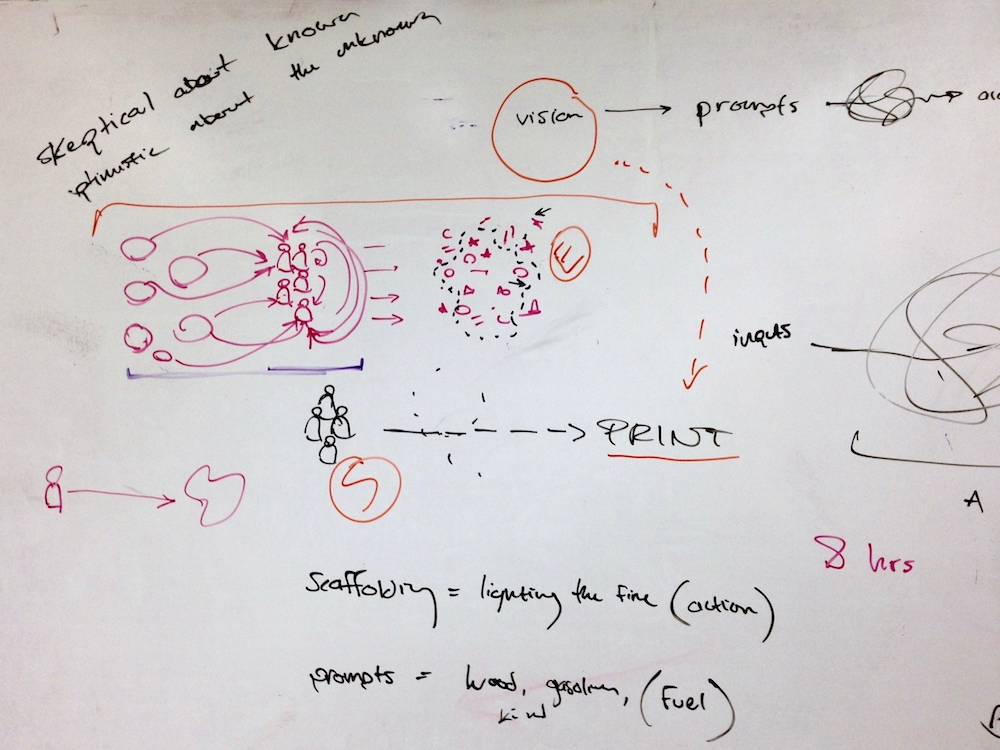 skeptical about known
optimistic about the unknown
vision
prompts
E
inputs
PRINT
S
A
8 hrs
scaffolding = lighting the fire (action)
prompts = wood, gasoline, (Fuel)